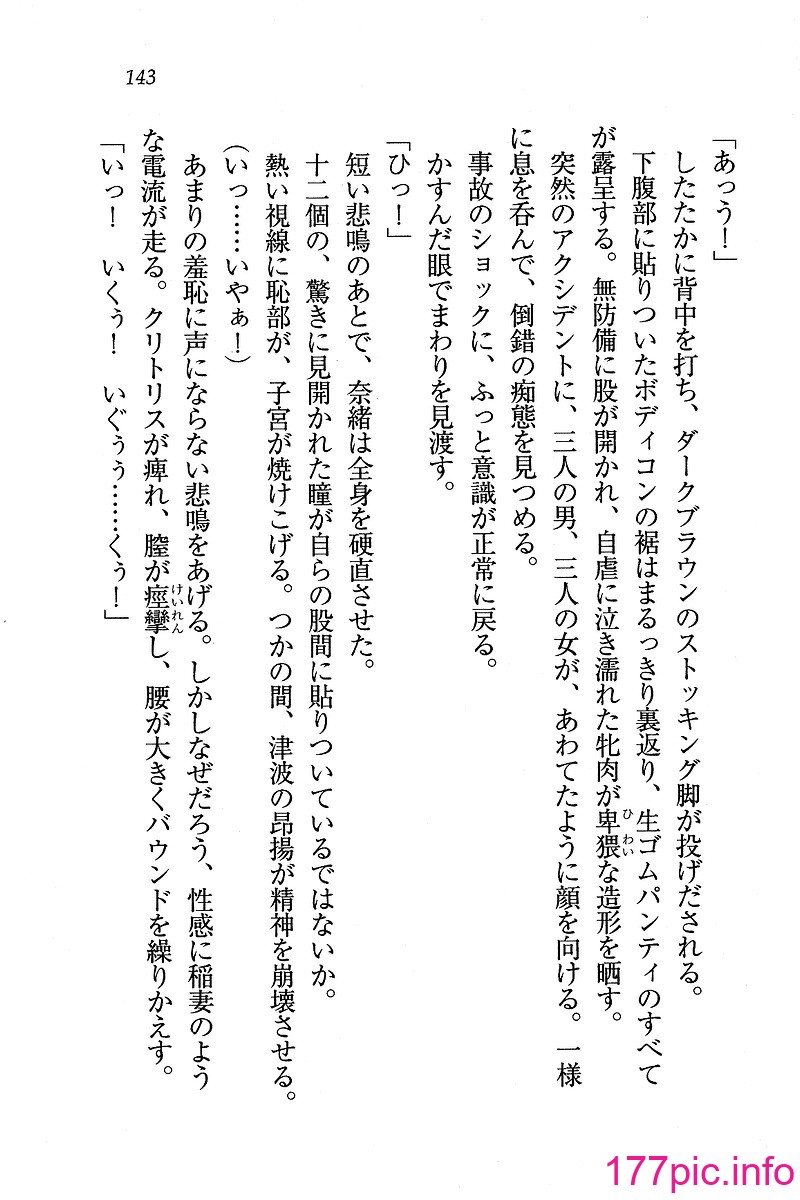 143
「あっう！」
したたかに背中を打ち、ダークブラウンのストッキング脚が投げだされる。
下腹部に貼りついたボディコンの裾はまるっきり裏返り、生ゴムパンティのすべて
が露呈する。無防備に股が開かれ、自虐に泣き濡れた牝肉が卑猥な造形を晒す。
ひわい
突然のアクシデントに、三人の男、三人の女が、あわてたように顔を向ける。一様
に息を呑んで、倒錯の痴態を見つめる。
事故のショックに、ふっと意識が正常に戻る。
かすんだ眼でまわりを見渡す。
「ひっ！」
短い悲鳴のあとで、奈緒は全身を硬直させた。
十二個の、驚きに見開かれた瞳が自らの股間に貼りついているではないか。
熱い視線に恥部が、子宮が焼けこげる。つかの間、津波の昂揚が精神を崩壊させる。
（いっ……いやぁ！）
あまりの羞恥に声にならない悲鳴をあげる。しかしなぜだろう、性感に稲妻のよう
な電流が走る。クリトリスが痺れ、膣が痙攣し、腰が大きくバウンドを繰りかえす。
けいれん
「いっ！　いくぅ！　いぐぅぅ……くぅ！」
177pic.info